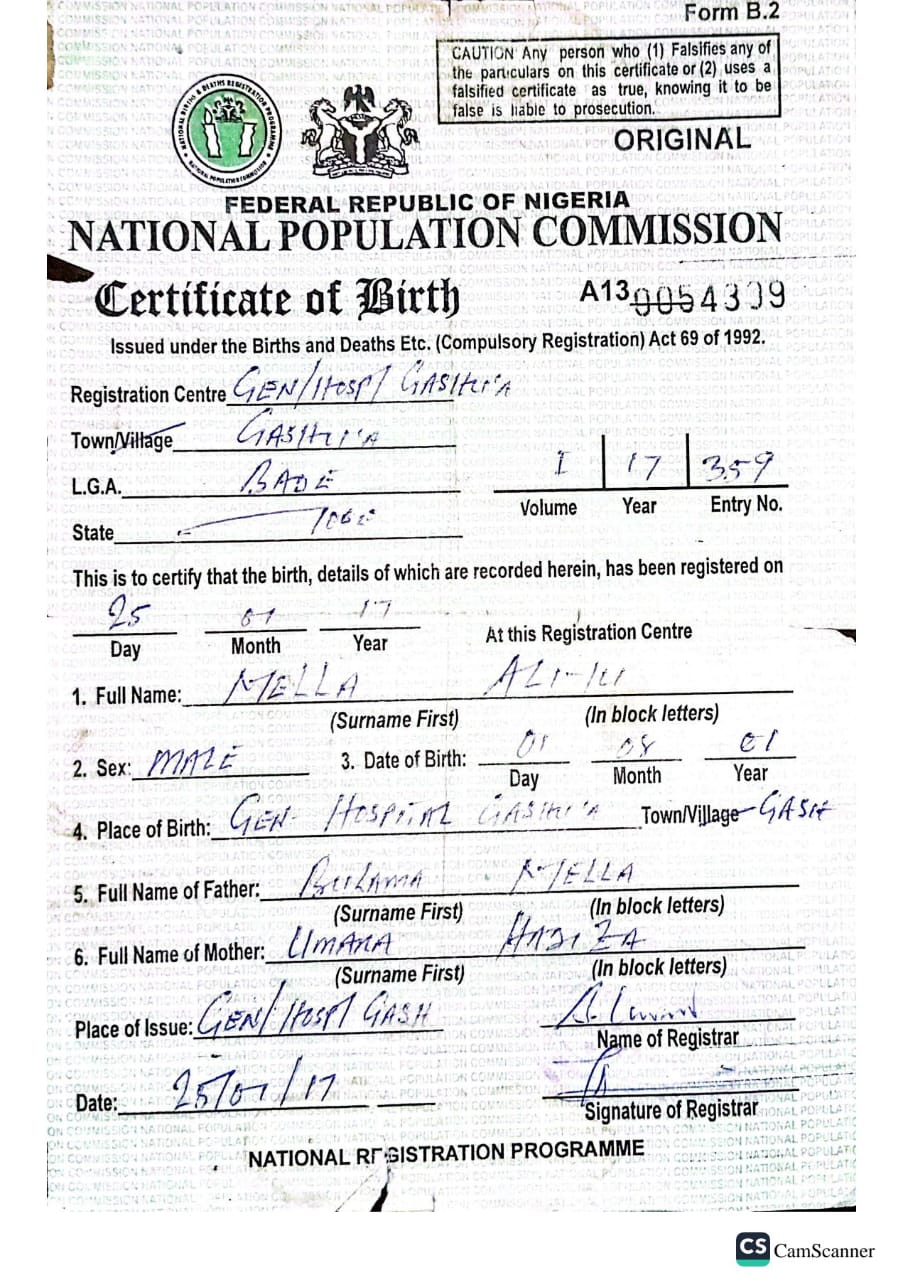 Form B.2
CAUTION Any person who (1) Falsifies any of
the particulars on this certificate or (2) uses a
falsified certificate as true, knowing it to be
false is liable to prosecution.
ORIGINAL
FEDERAL REPUBLIC OF NIGERIA
NATIONAL POPULATION COMMISSION
Certificate of Birth A13 0054309
Issued under the Births and Deaths Etc. (Compulsory Registration) Act 69 of 1992.
Registration Centre GEN/HOSP/ GASHU'A
Town/Village GASHU'A
L.G.A. BADE
I 17 359
Volume Year Entry No.
State YOBE
This is to certify that the birth, details of which are recorded herein, has been registered on
25 17
Day Month Year At this Registration Centre
1. Full Name: MELLA
(Surname First) (In block letters)
2. Sex: MALE 3. Date of Birth: 01 08 01
Day Month Year
4. Place of Birth: GEN. HOSPITAL GASHU'A Town/Village GASH
5. Full Name of Father: BULAMA MELLA
(Surname First) (In block letters)
6. Full Name of Mother: UMARA HADIZA
(Surname First) (In block letters)
Place of Issue: GEN/HOSP/ GASH
Name of Registrar
Date:
Signature of Registrar
NATIONAL REGISTRATION PROGRAMME
CS CamScanner